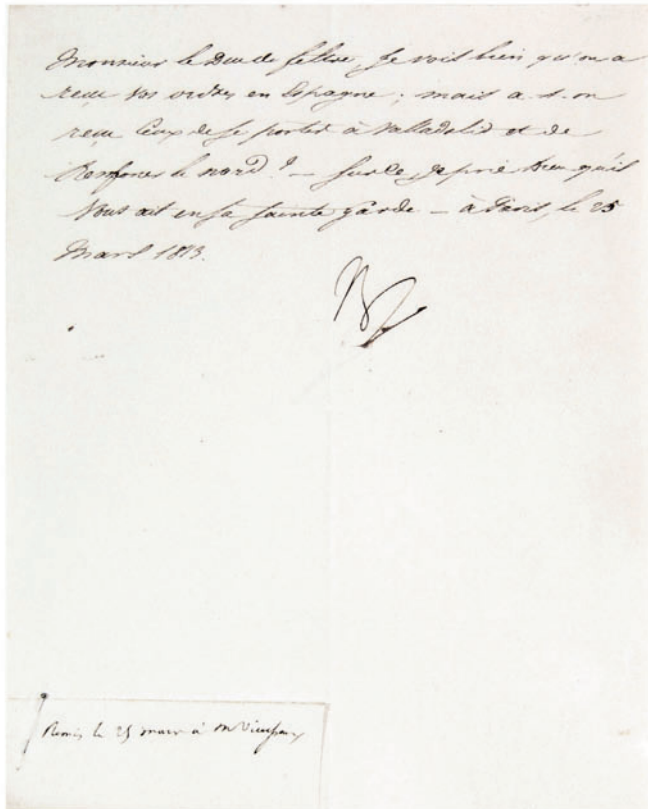 Monsieur le Duc de feltre, Je vois bien qu'on a
recu vos ordres en Espagne ; mais a-t-on
reçu Ceux de se porter à Valladolid et de
Renforcer le nord ? — Sur ce, Je prie Dieu qu'il
Vous ait en sa sainte garde — à Paris, le 25
Mars 1813.
Remis le 25 mars à Mr